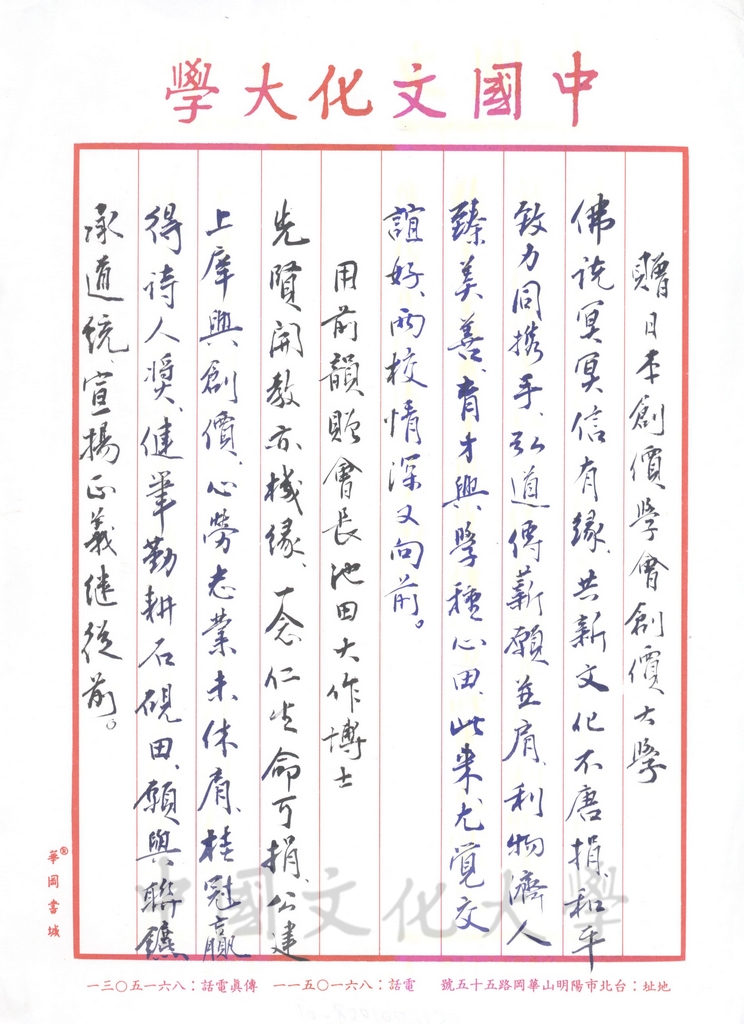 中國文化大學
贈日本創價学會創價大学
佛说冥冥信有緣、共新文化不唐捐、和平
致力同携手、弘道傳薪願並肩、利物濟人
臻美善、育才興學種心田、此来尤覺交
誼好、兩校情深又向前。
用前韻贈會長池田大作博士
先賢開教亦機緣、一念仁生命可捐、公建
上庠興創價、心勞志業未休肩、桂冠贏
得诗人奬、健筆勤耕石硯田、願與聯鑣
承道統、宣揚正義继從前。
®華岡書城
中國文化大學
地址：台北市陽明山華岡路五十五號 電話：八六一〇五一一 傳眞電話：八六一五〇三一